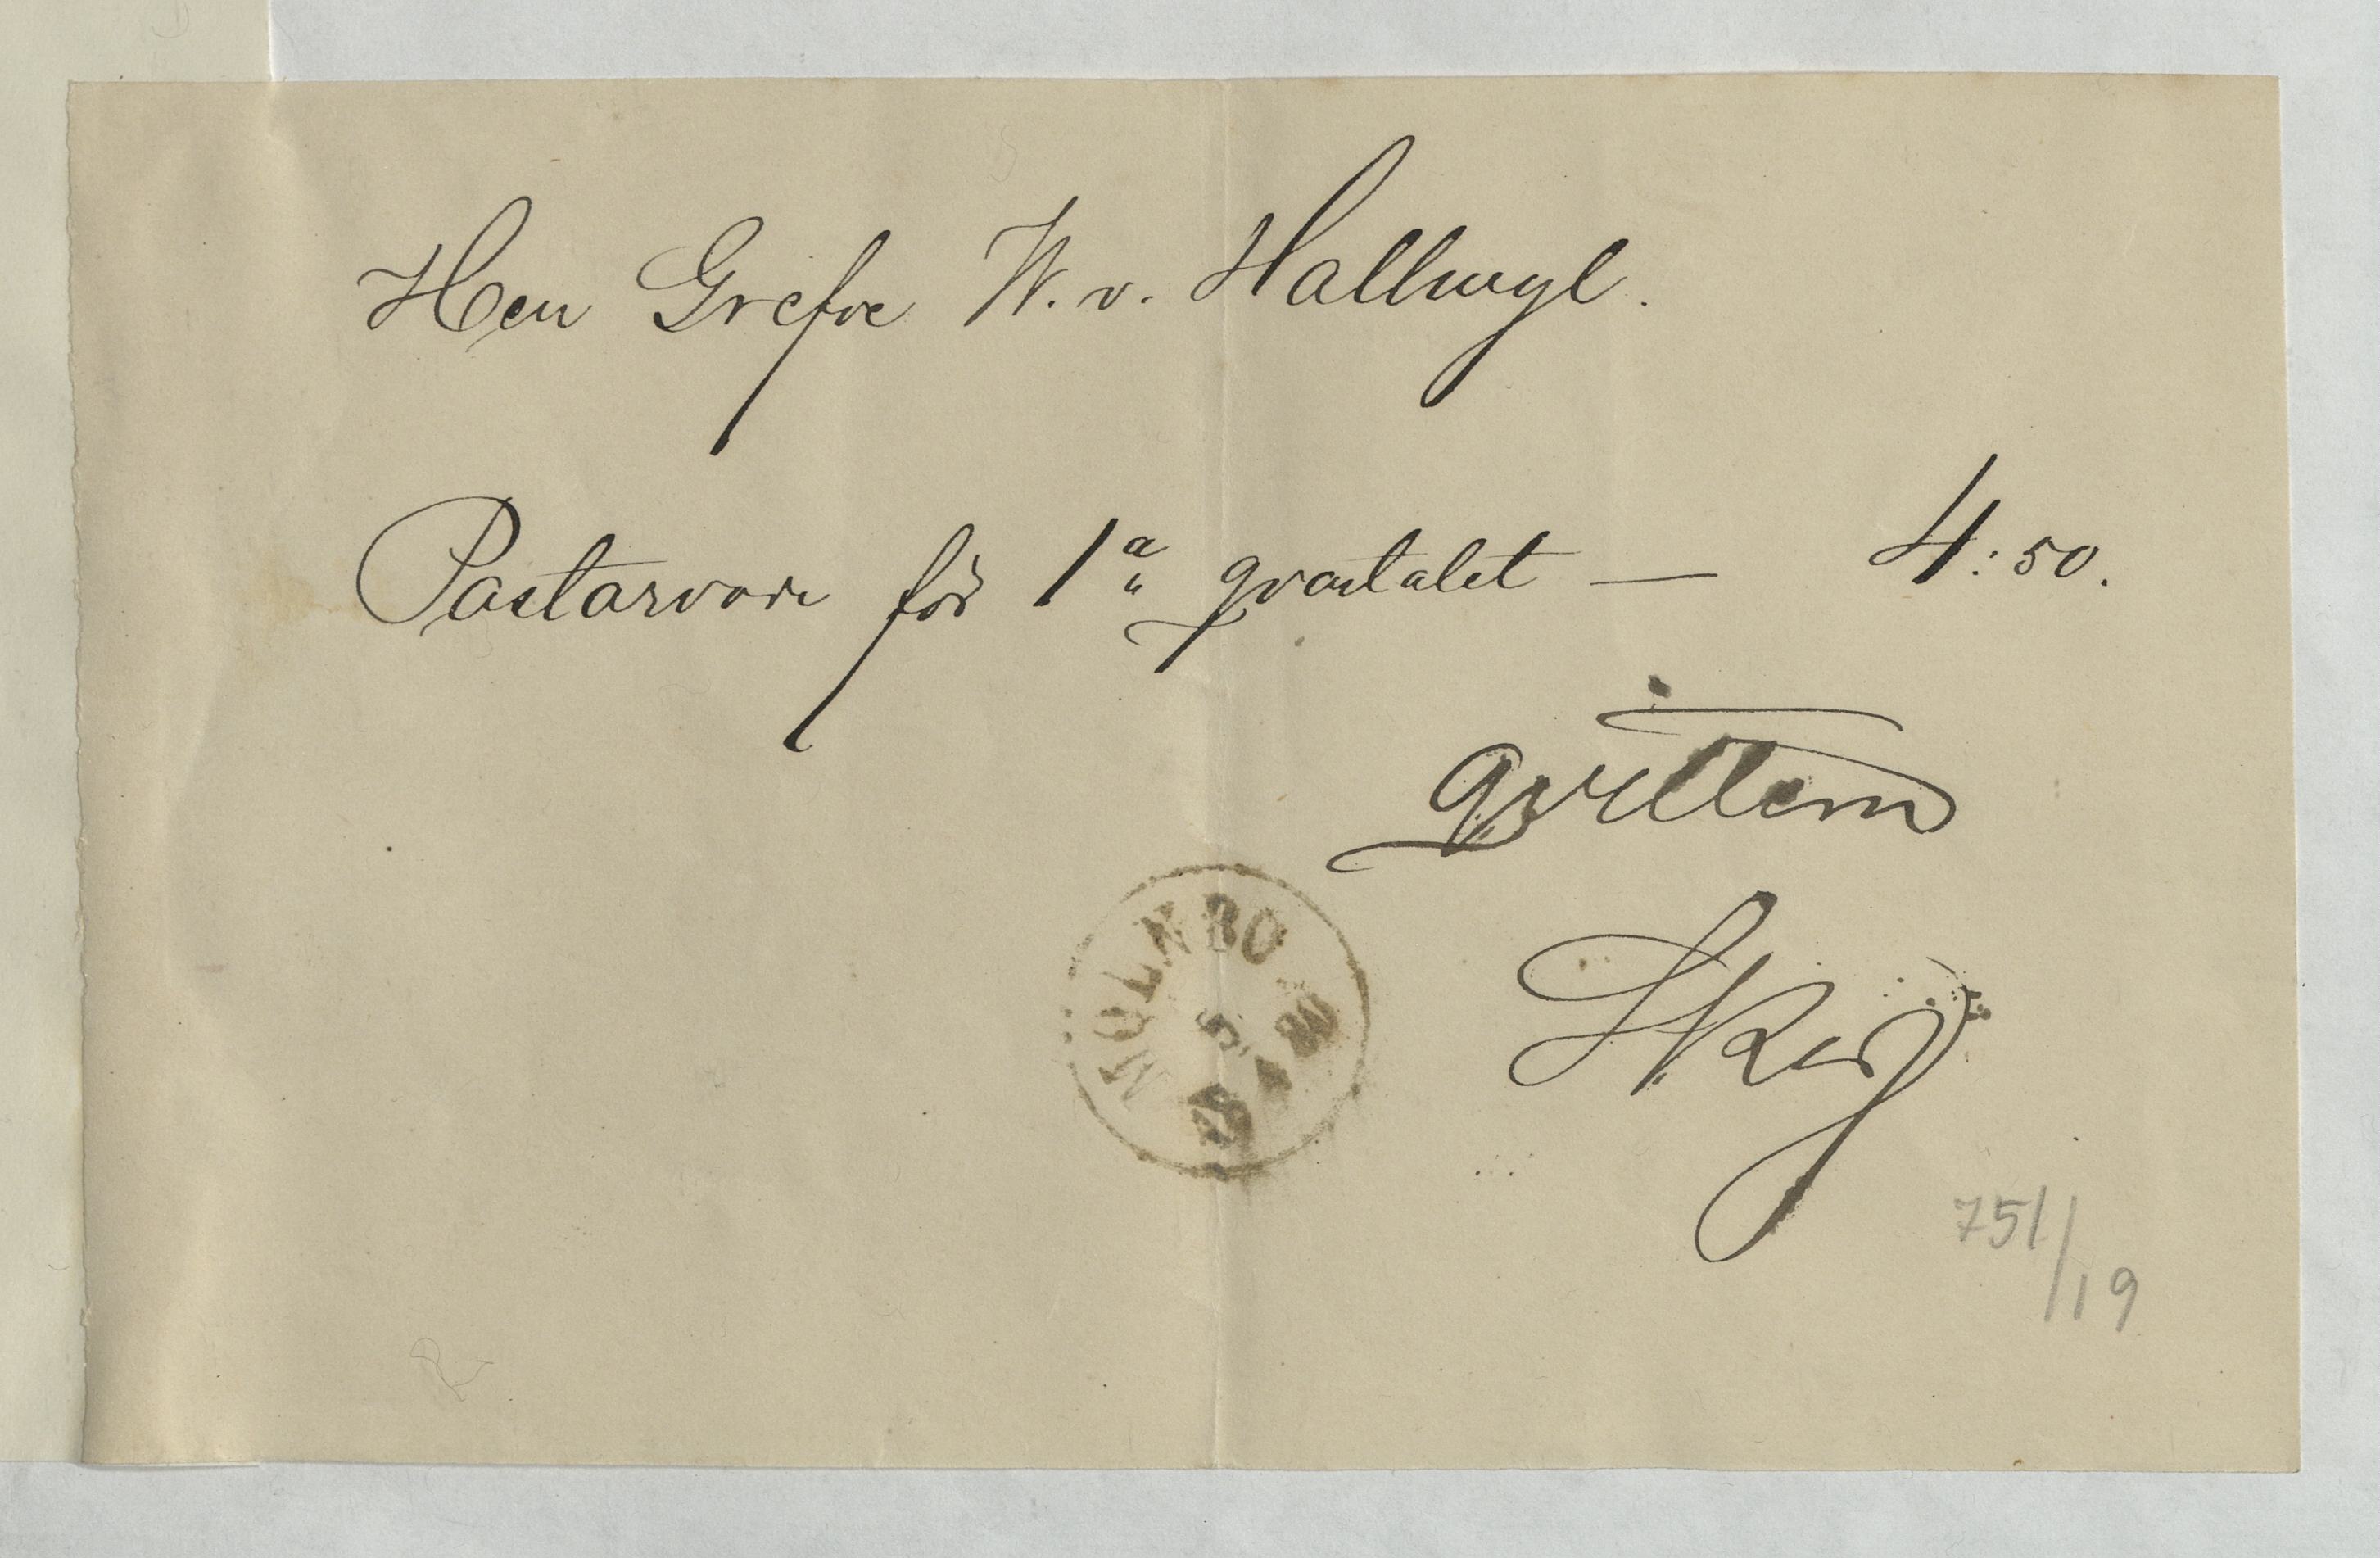 Herr Grefve W. v. Hallwyl.
Postarvode för 1a qvartalet — 4:50.
Qvitteras
MÖLNBO
5
4
751/19